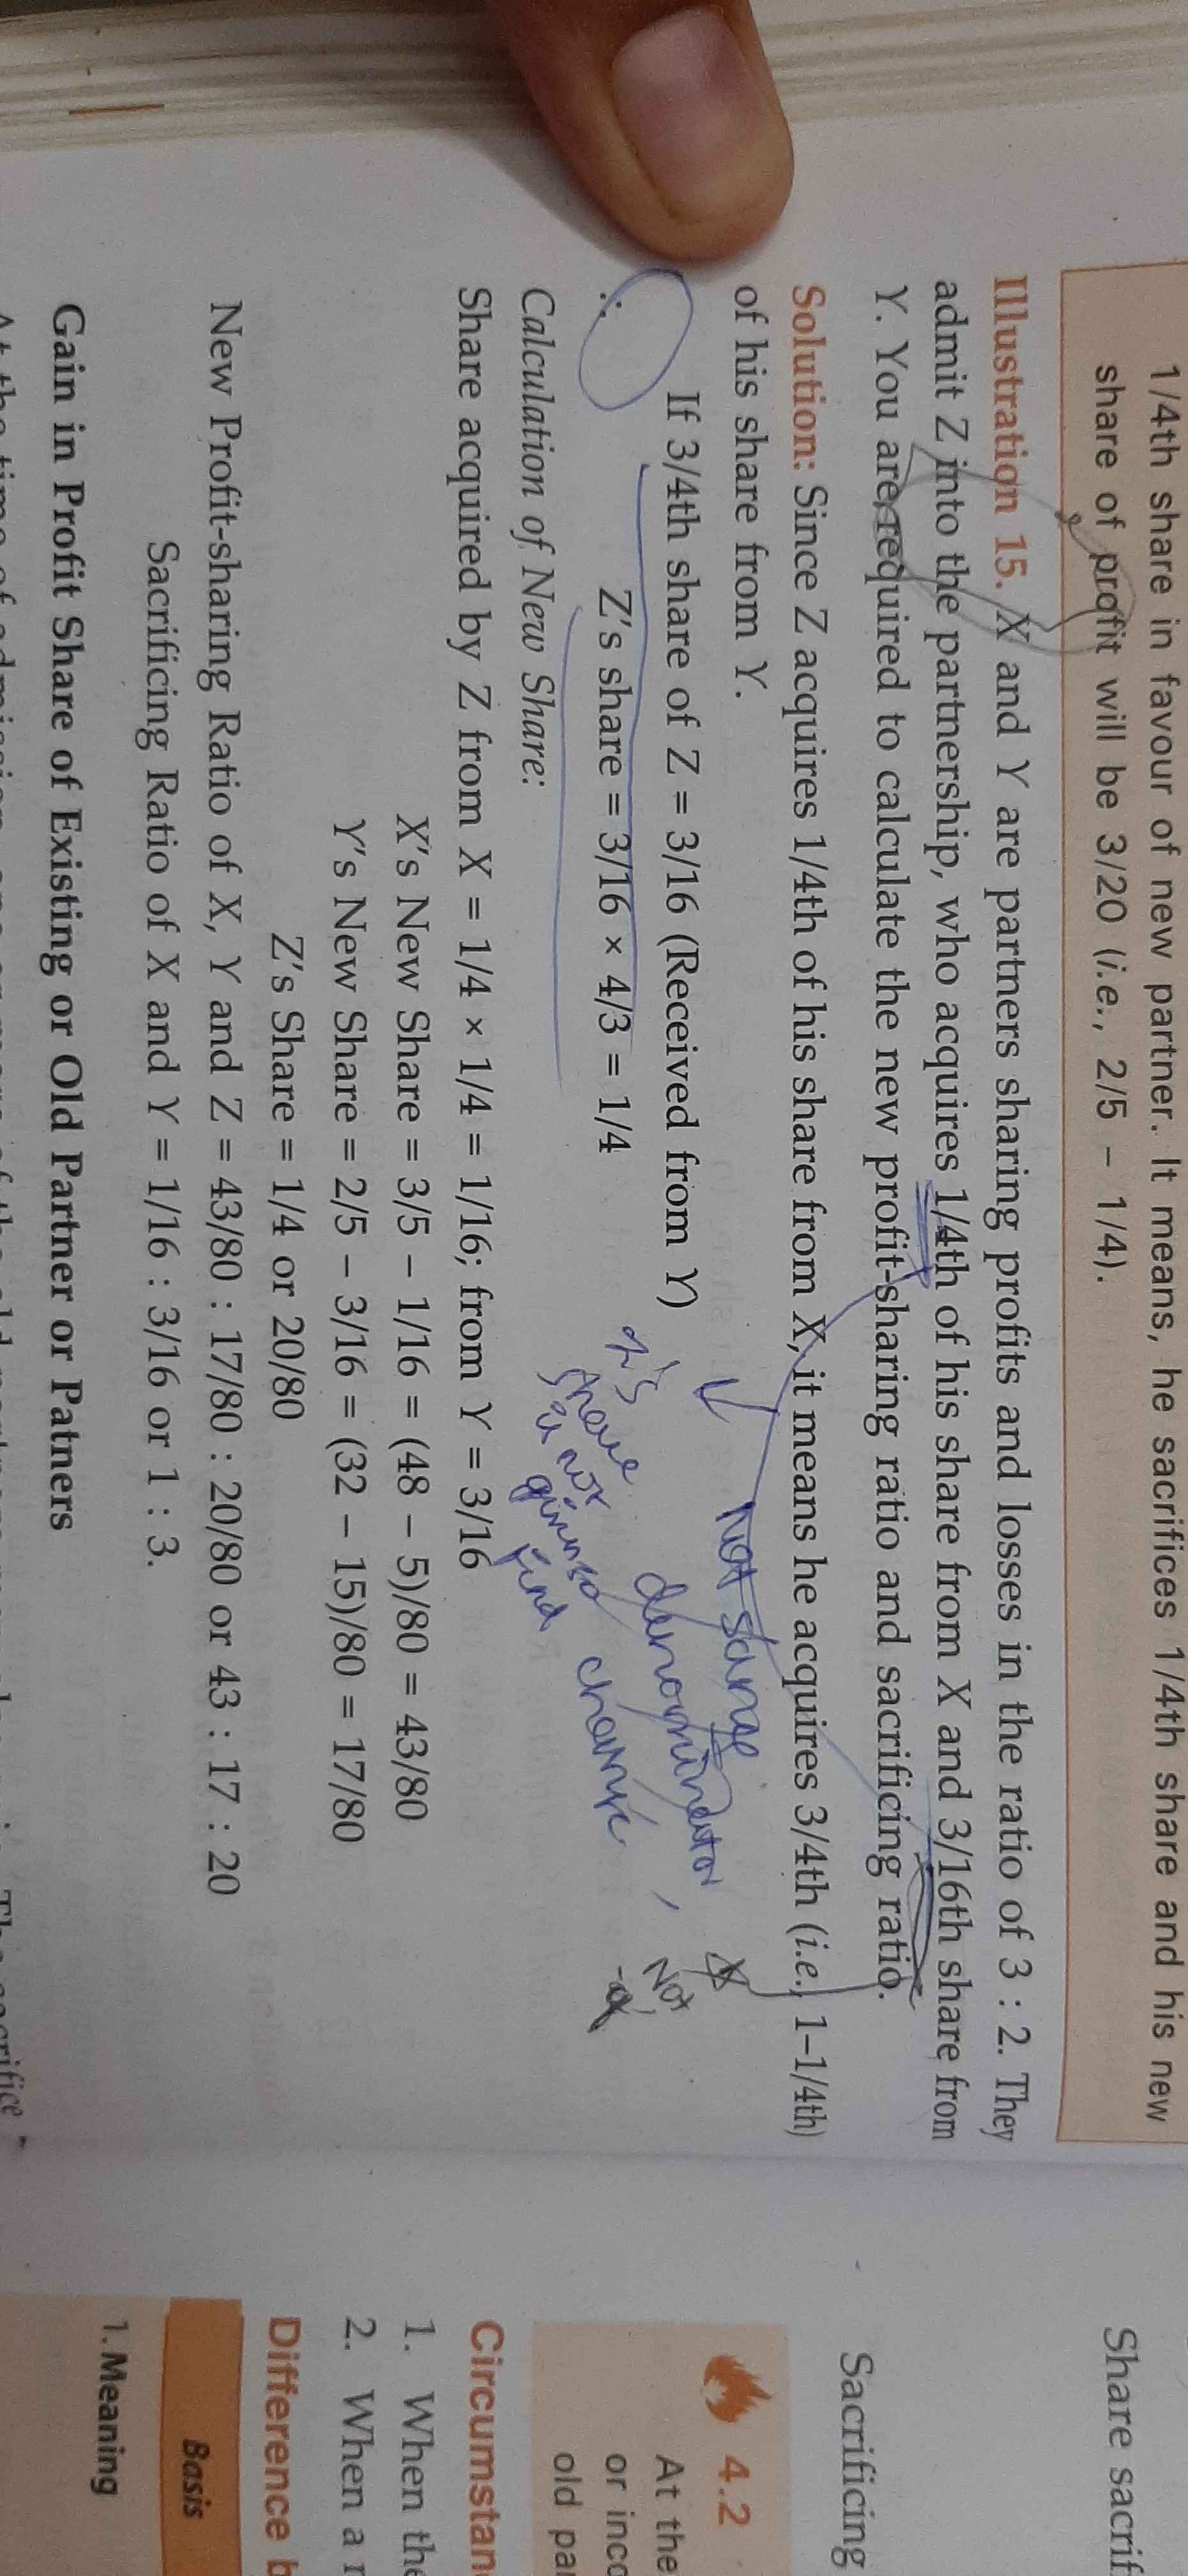 1/4th share in favour of new partner. It means, he sacrifices 1/4th share and his new
share of profit will be 3/20 (i.e., 2/5 – 1/4).
Illustration 15. X and Y are partners sharing profits and losses in the ratio of 3 : 2. They
admit Z into the partnership, who acquires 1/4th of his share from X and 3/16th share from
Y. You are required to calculate the new profit-sharing ratio and sacrificing ratio.
Solution: Since Z acquires 1/4th of his share from X, it means he acquires 3/4th (i.e., 1–1/4th)
of his share from Y.
If 3/4th share of Z = 3/16 (Received from Y)
∴ Z's share = 3/16 × 4/3 = 1/4
Not same
denominator,
change
Not
Z's
share
is not
given so
find
Calculation of New Share:
Share acquired by Z from X = 1/4 × 1/4 = 1/16; from Y = 3/16
X's New Share = 3/5 – 1/16 = (48 – 5)/80 = 43/80
Y's New Share = 2/5 – 3/16 = (32 – 15)/80 = 17/80
Z's Share = 1/4 or 20/80
New Profit-sharing Ratio of X, Y and Z = 43/80 : 17/80 : 20/80 or 43 : 17 : 20
Sacrificing Ratio of X and Y = 1/16 : 3/16 or 1 : 3.
Gain in Profit Share of Existing or Old Partner or Patners
Share sacrif
Sacrificing
4.2
At the
or inco
old pa
Circumstan
1. When the
2. When a
Difference b
Basis
1. Meaning